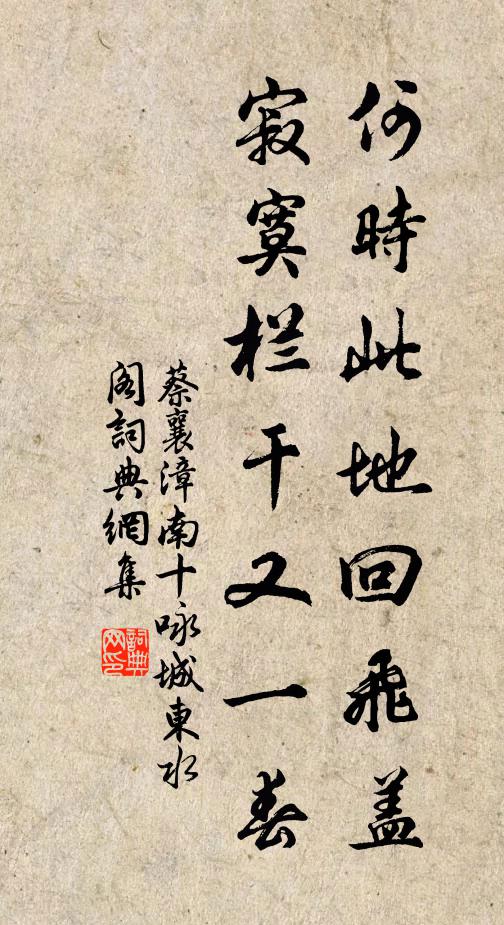 何時此地回飛盖
寂寞栏干又一春
蔡襄漳南十咏城東水
閣詞典網集
詞典
网印